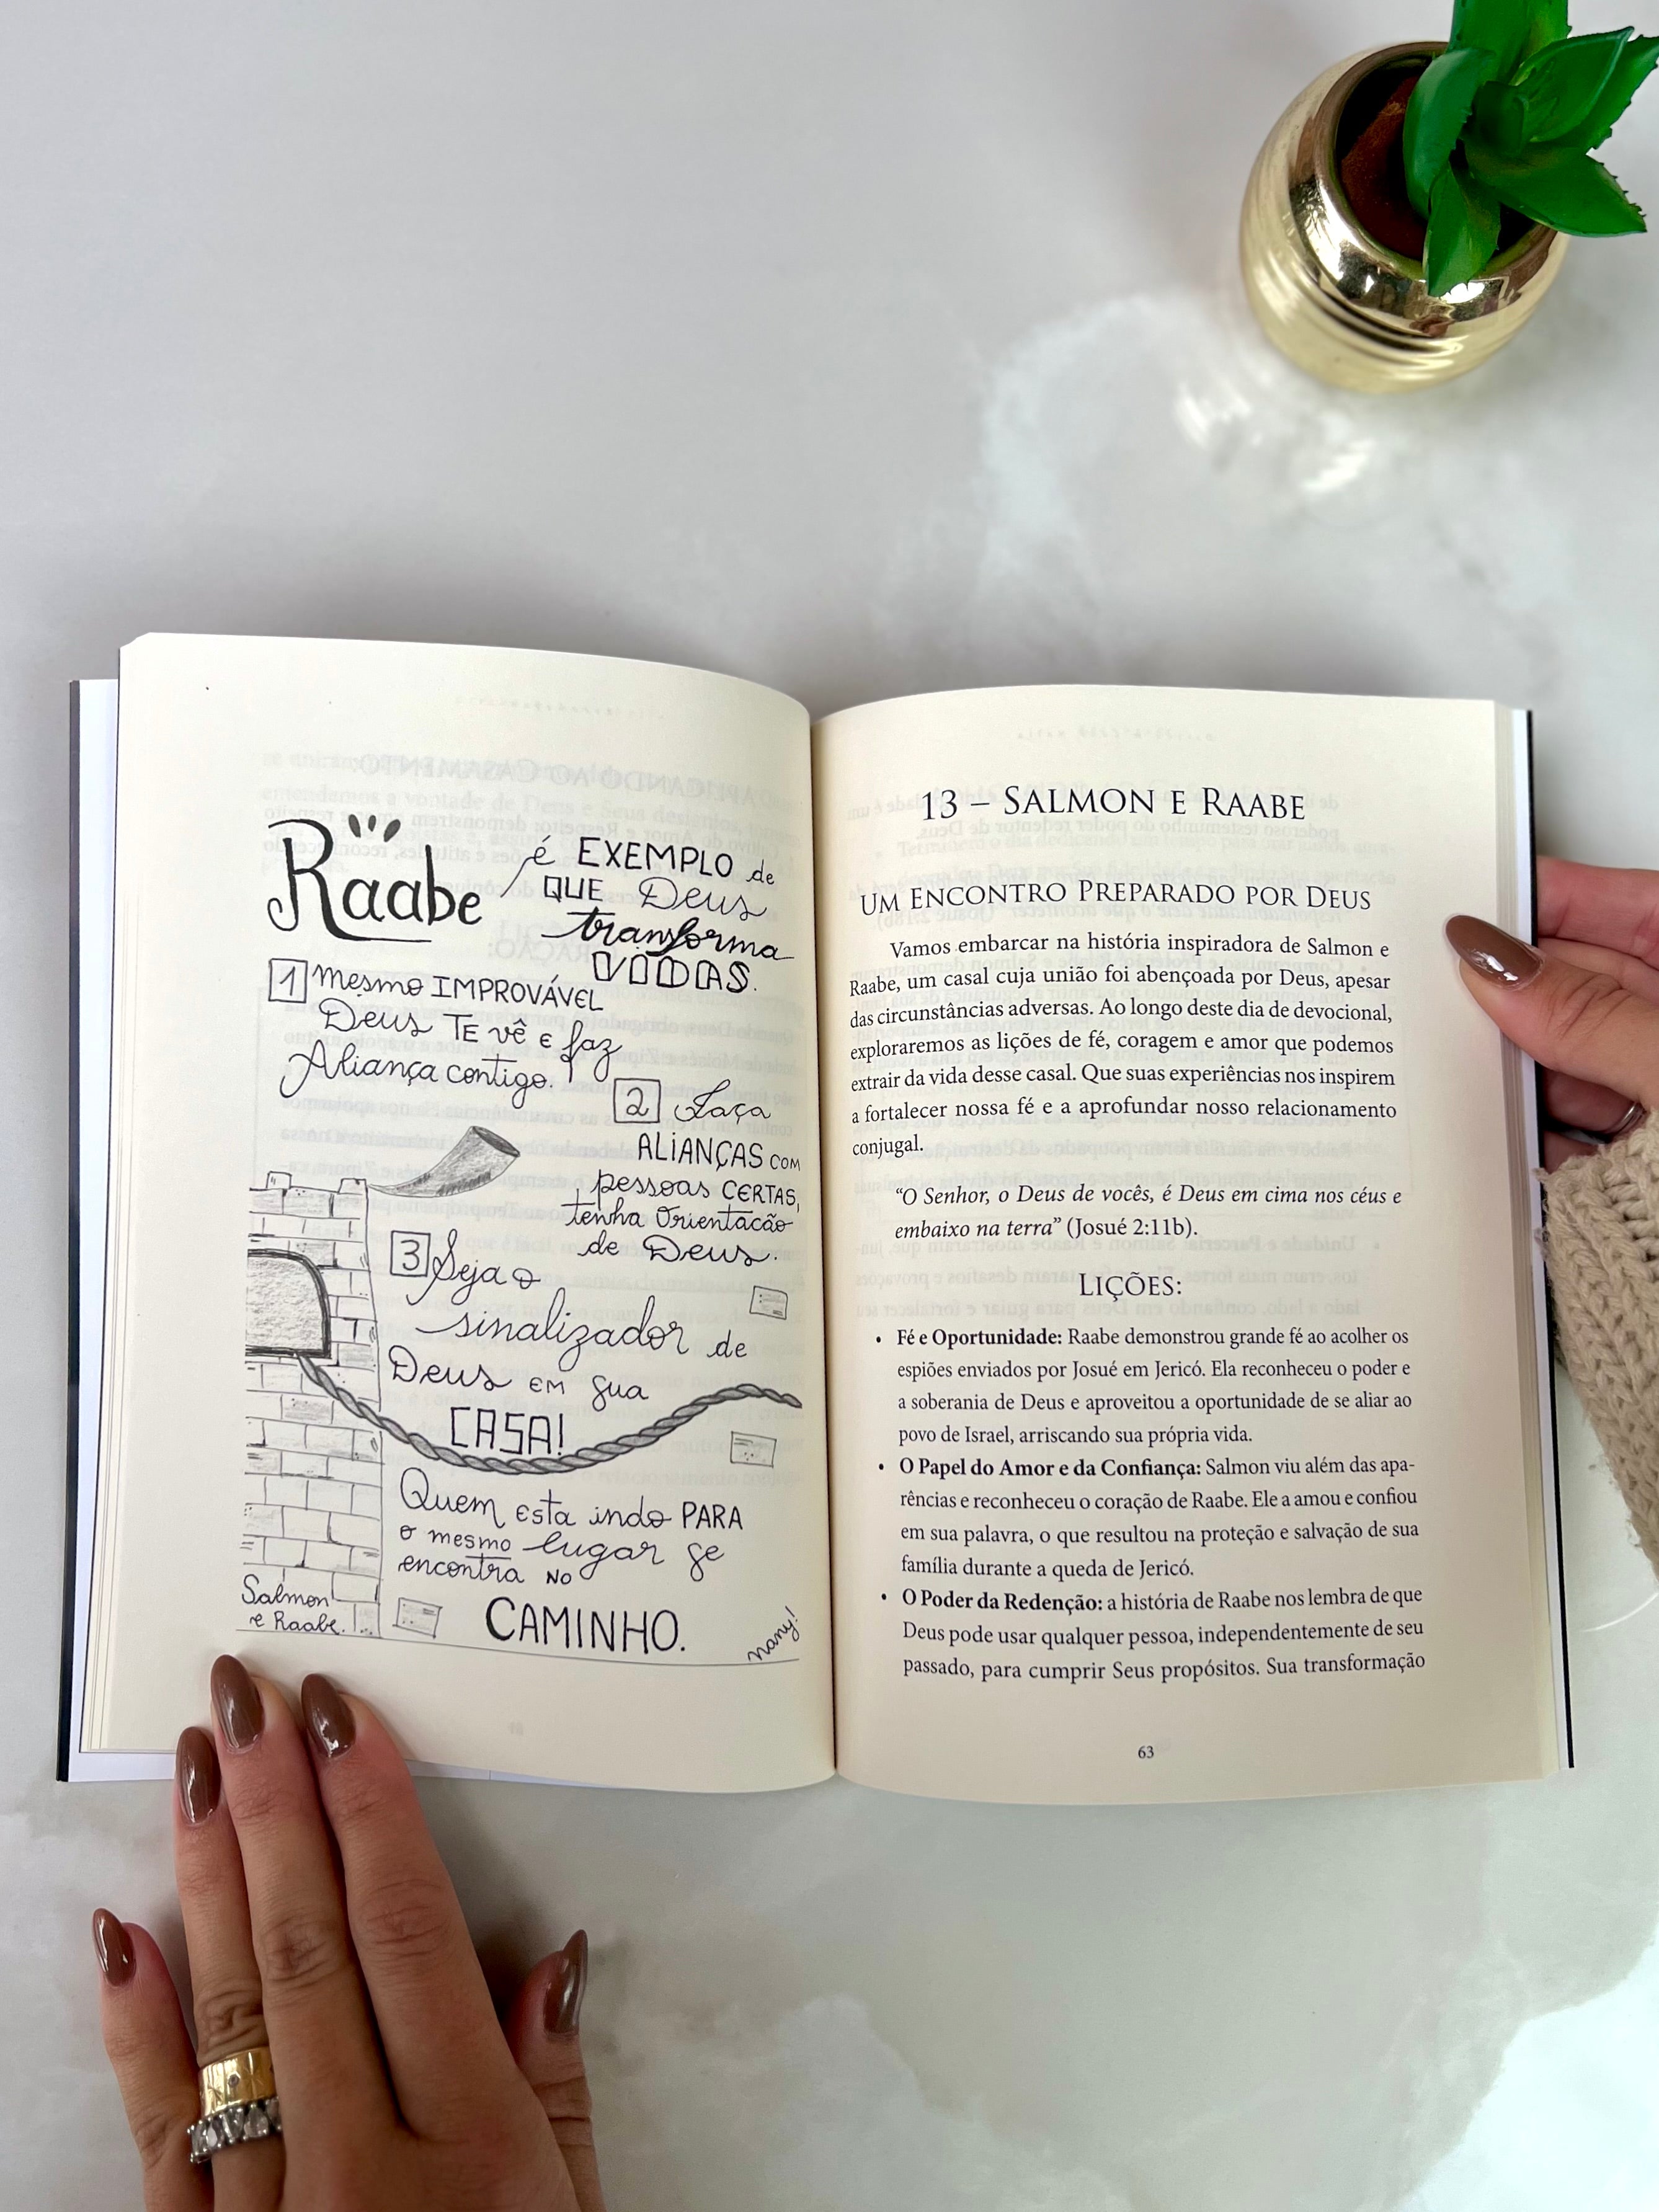 Raabe é EXEMPLO de
QUE Deus
transforma
VIDAS.
1 Mesmo IMPROVÁVEL
Deus TE vê E faz
Aliança contigo.
2 Faça
ALIANÇAS COM
pessoas CERTAS,
tenha Orientacão
de Deus.
3 Seja o
sinalizador de
Deus EM sua
CASA!
Quem esta indo PARA
o mesmo lugar se
encontra NO
CAMINHO.
Salmon
e Raabe.
nany!
13 – SALMON E RAABE
UM ENCONTRO PREPARADO POR DEUS
Vamos embarcar na história inspiradora de Salmon e
Raabe, um casal cuja união foi abençoada por Deus, apesar
das circunstâncias adversas. Ao longo deste dia de devocional,
exploraremos as lições de fé, coragem e amor que podemos
extrair da vida desse casal. Que suas experiências nos inspirem
a fortalecer nossa fé e a aprofundar nosso relacionamento
conjugal.
“O Senhor, o Deus de vocês, é Deus em cima nos céus e
embaixo na terra” (Josué 2:11b).
LIÇÕES:
• Fé e Oportunidade: Raabe demonstrou grande fé ao acolher os
espiões enviados por Josué em Jericó. Ela reconheceu o poder e
a soberania de Deus e aproveitou a oportunidade de se aliar ao
povo de Israel, arriscando sua própria vida.
• O Papel do Amor e da Confiança: Salmon viu além das apa-
rências e reconheceu o coração de Raabe. Ele a amou e confiou
em sua palavra, o que resultou na proteção e salvação de sua
família durante a queda de Jericó.
• O Poder da Redenção: a história de Raabe nos lembra de que
Deus pode usar qualquer pessoa, independentemente de seu
passado, para cumprir Seus propósitos. Sua transformação
63